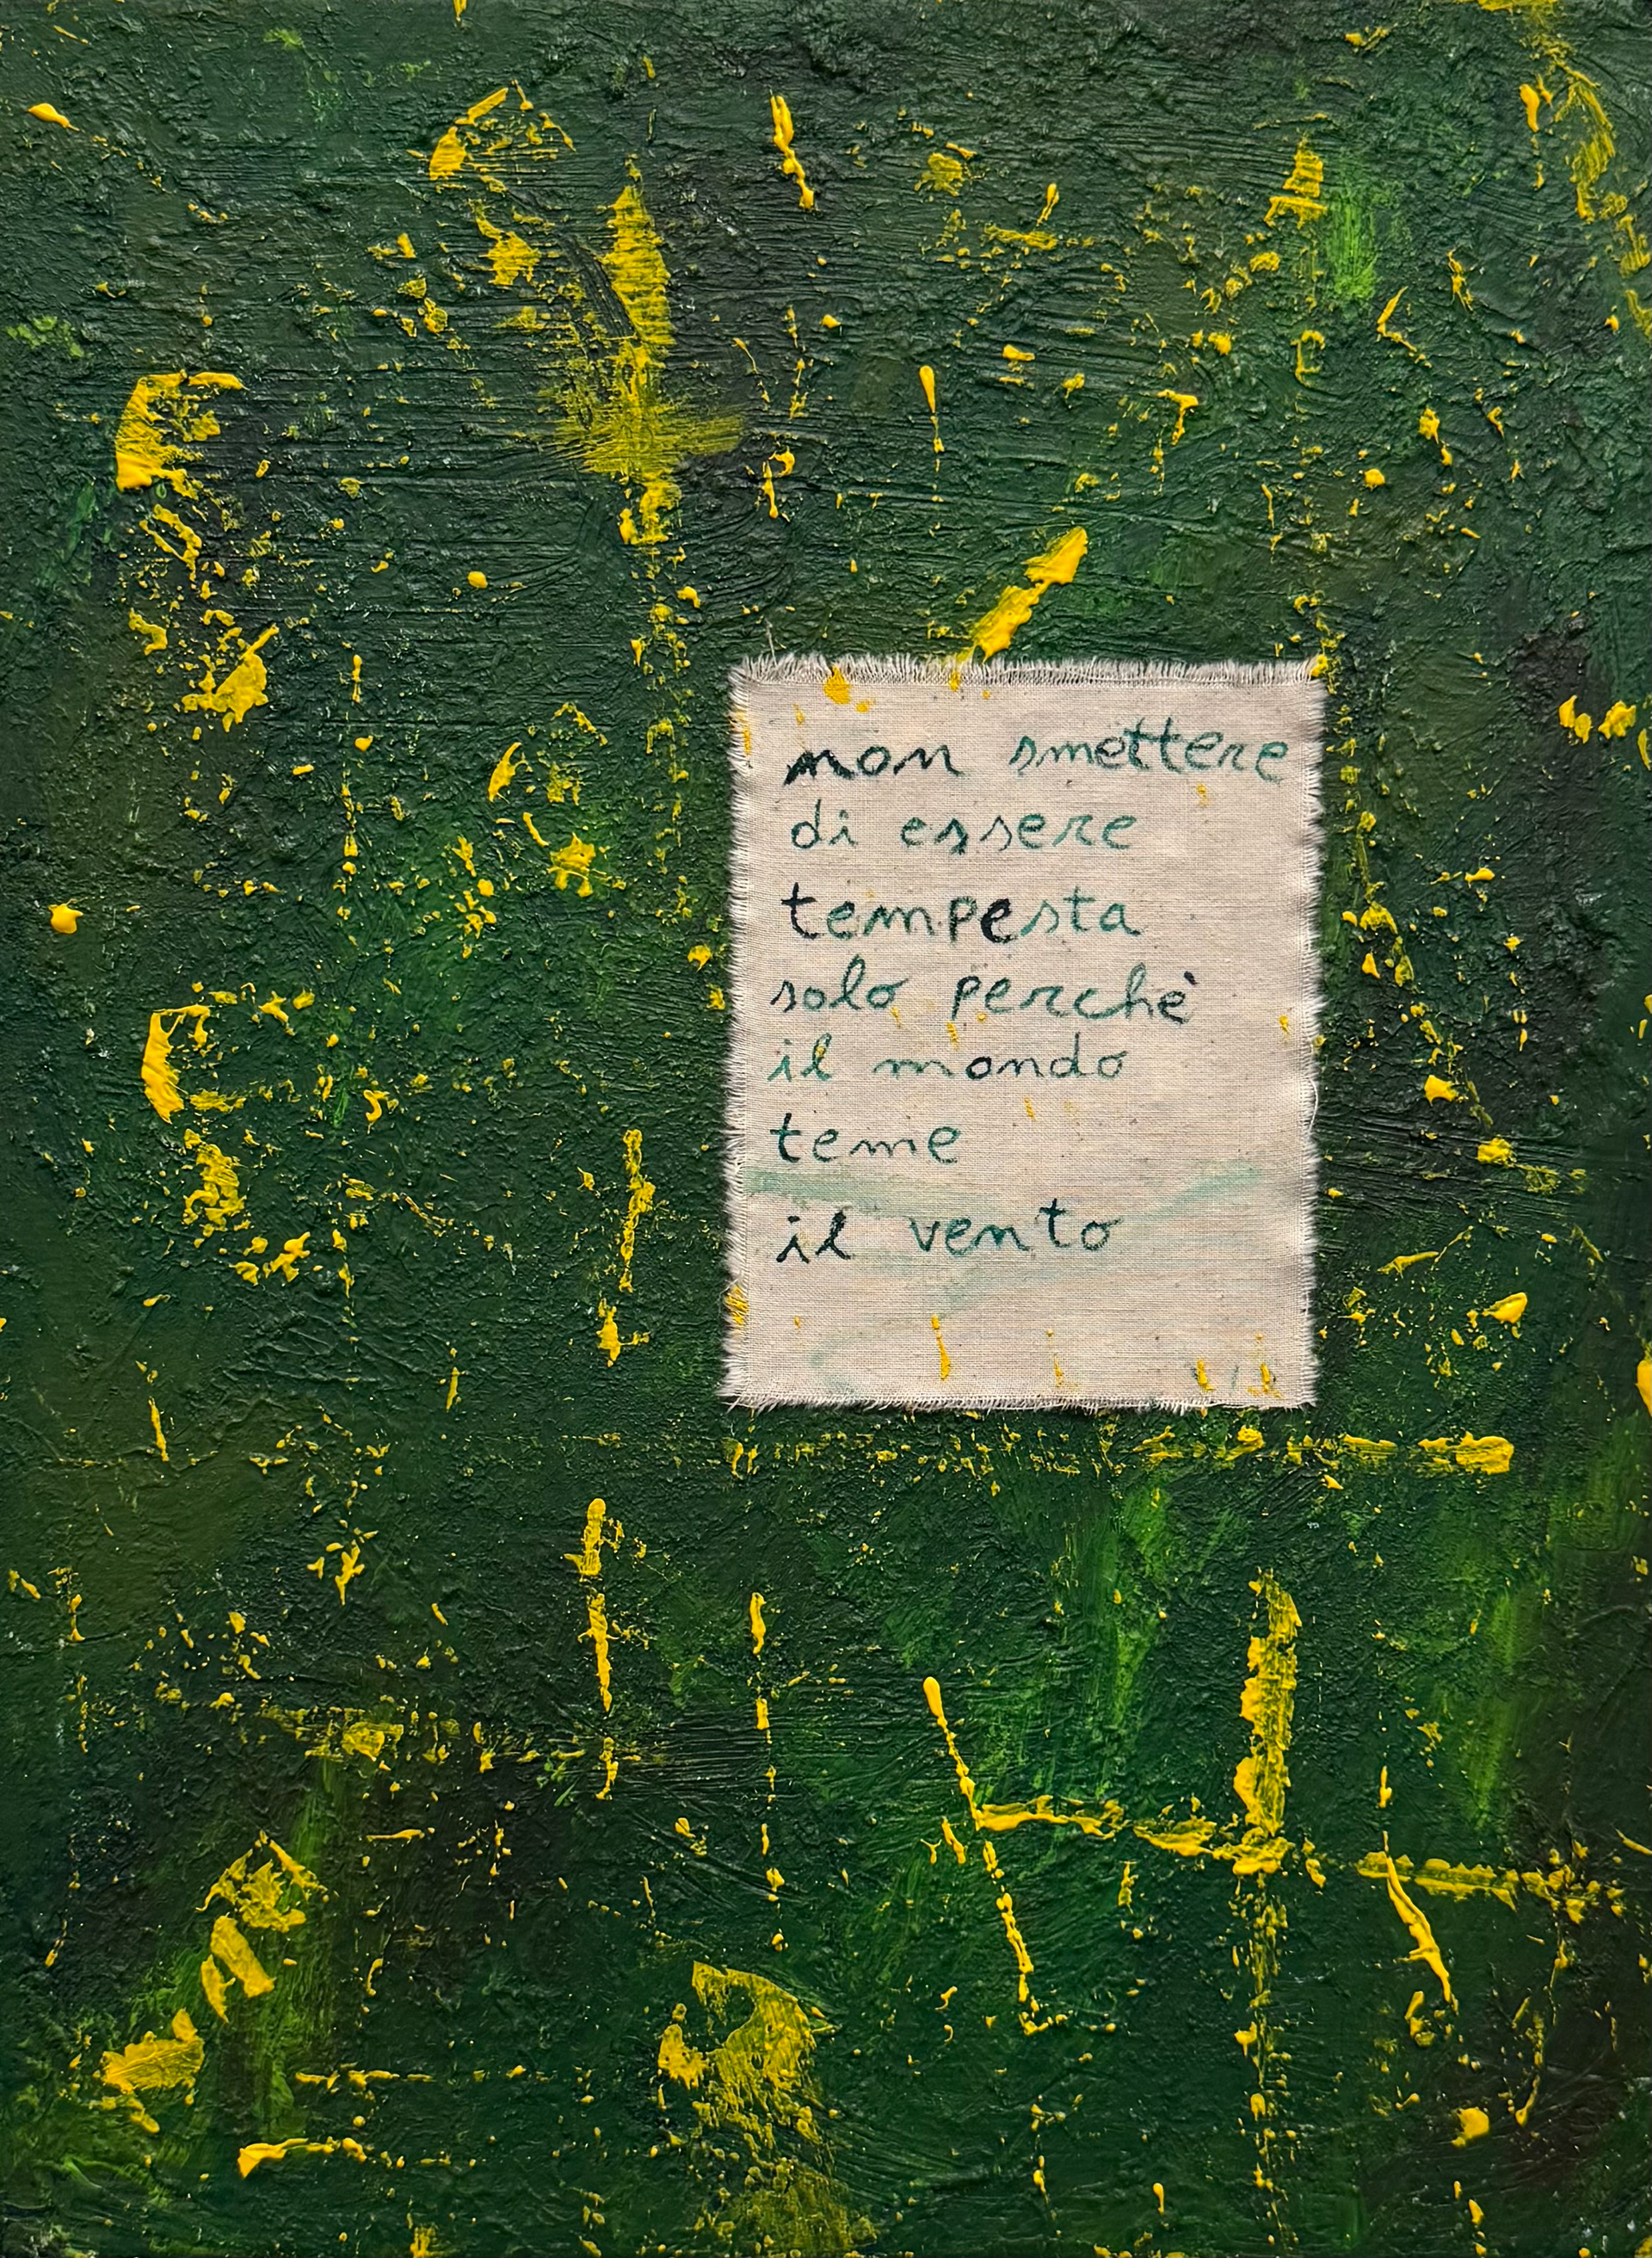 non smettere
di essere
tempesta
solo perchè
il mondo
teme
il vento